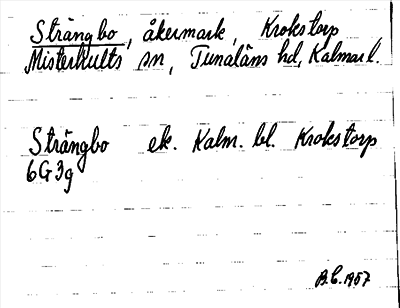 Strängbo, åkermark, Krokstorp,
Misterhults sn, Tunaläns hd, Kalmar l.
Strängbo ek. Kalm. bl. Krokstorp
6G3g
B.C. 1957